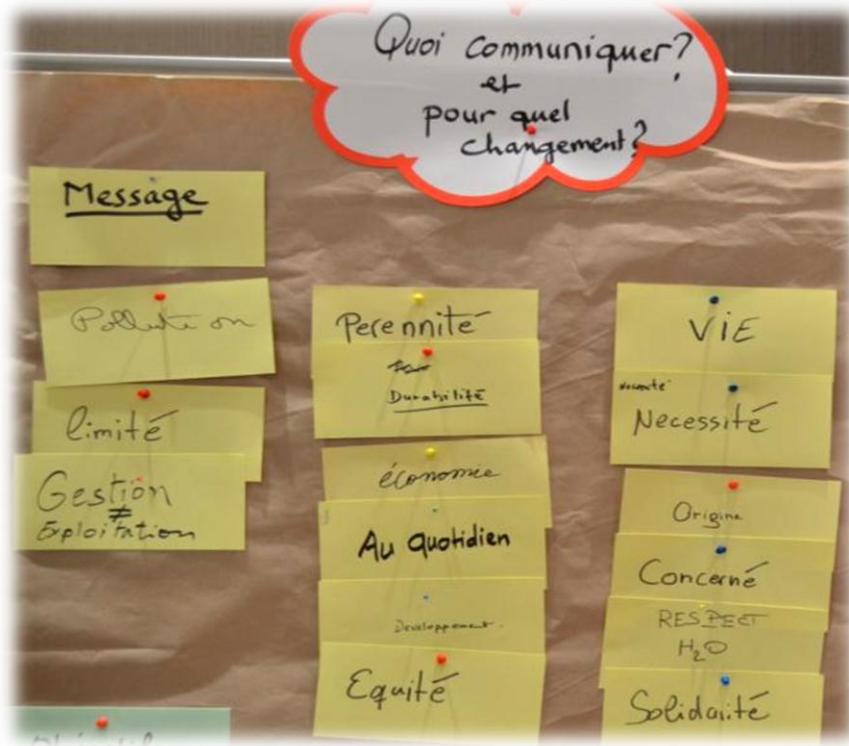 Quoi communiquer?
et
pour quel
changement?
Message
Pollution
limité
Gestion
≠
Exploitation
Perennité
Durabilité
économie
Au quotidien
Developpement
Equité
VIE
Necessité
Origine
Concerné
RESPECT
H₂O
Solidarité